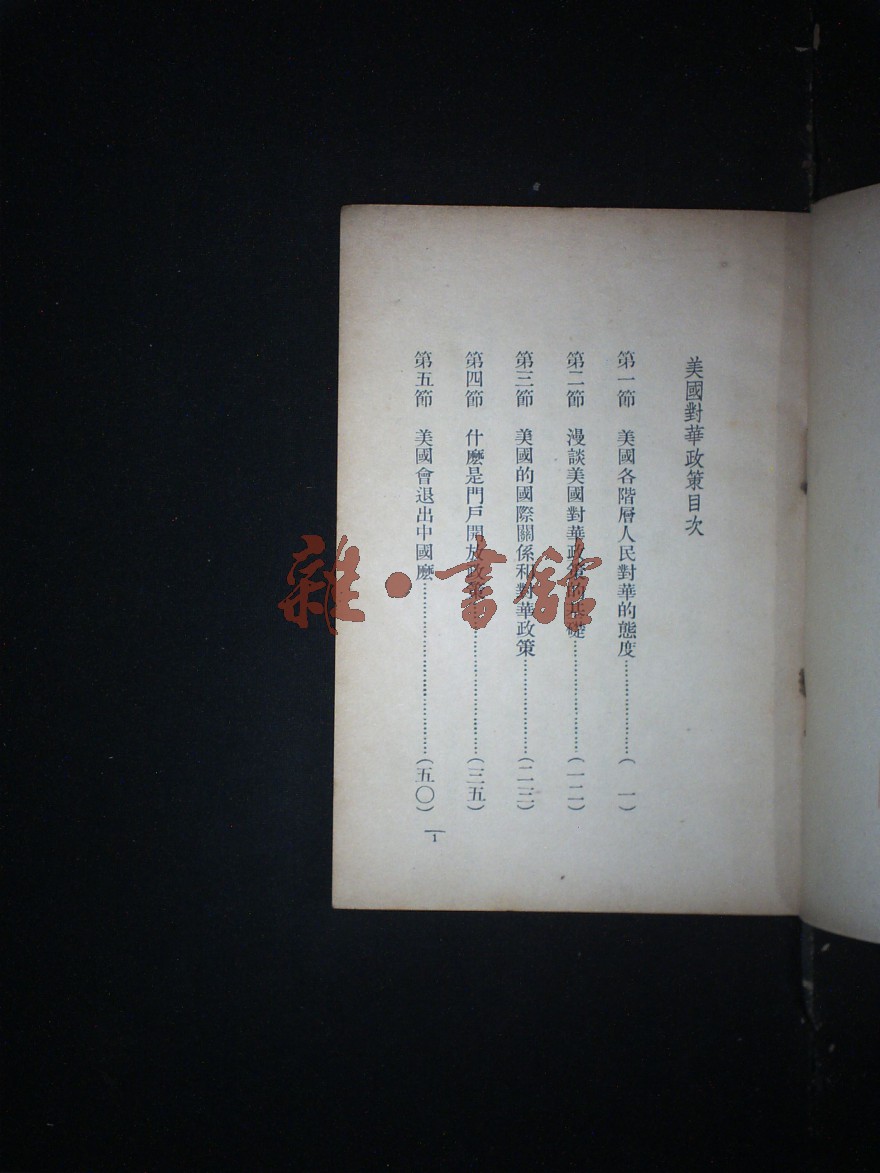 美國對華政策目次
第一節 美國各階層人民對華的態度……………(一)
第二節 漫談美國對華政策的基礎………………(一二)
第三節 美國的國際關係和對華政策……………(二三)
第四節 什麽是門戶開放政策……………………(三五)
第五節 美國會退出中國麽………………………(五〇)
1
雜·書舘